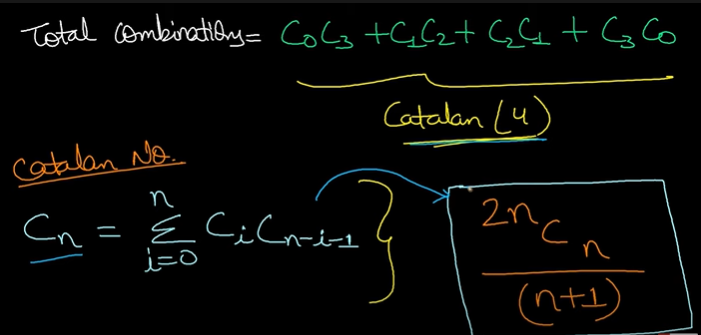 Total combinations = C0C3 + C1C2 + C2C1 + C3C0
Catalan (4)
Catalan No.
Cn = n Σ i=0 Ci Cn-i-1
2n C n
(n+1)